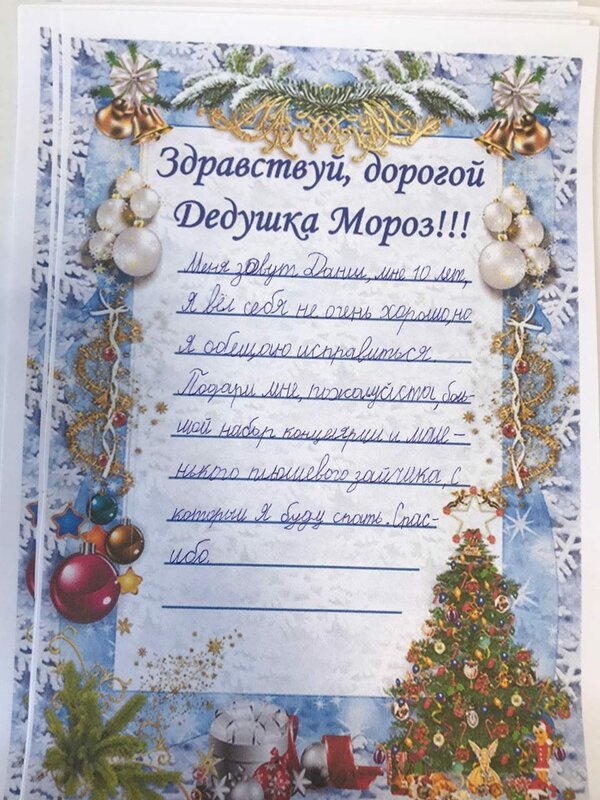 Здравствуй, дорогой
Дедушка Мороз!!!
Меня зовут Данил, мне 10 лет,
Я вёл себя не очень хорошо, но
Я обещаю исправиться.
Подари мне, пожалуйста, боль-
шой набор канцелярии и мале-
нького плюшевого зайчика, с
которым я буду спать. Спас-
ибо.